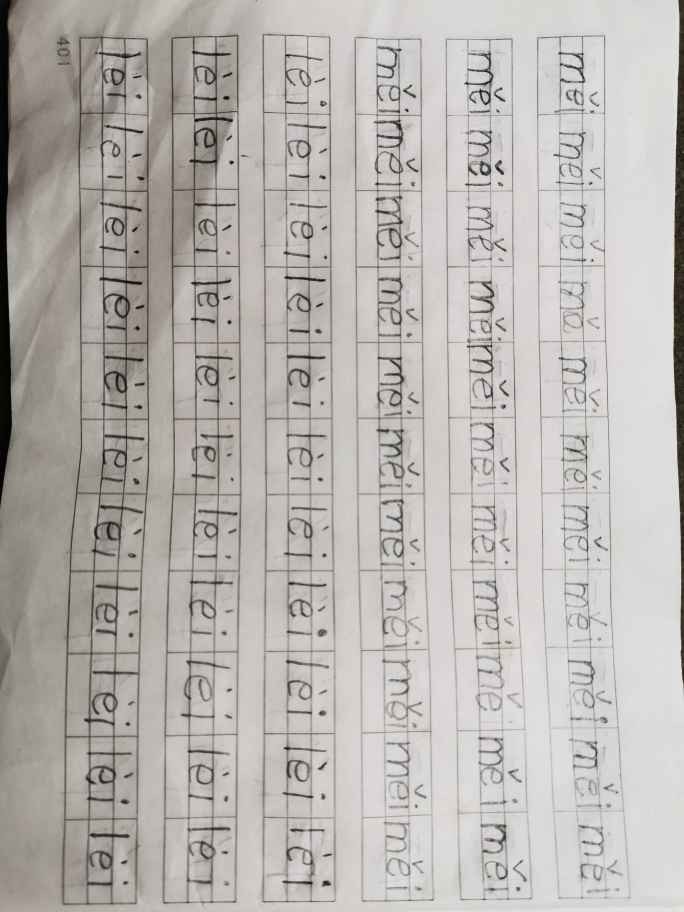 měi měi měi mě měi měi měi měi měi měi měi
měi měi měi měi měi měi měi měi mě měi měi
měi měi měi měi měi měi měi měi měi měi měi
lèi lèi lèi lèi lèi lèi lèi lèi lèi lèi lèi
lèi lèi lèi lèi lèi lèi lèi lèi lèi lèi lèi
lèi lèi lèi lèi lèi lèi lèi lèi lèi lèi lèi
401